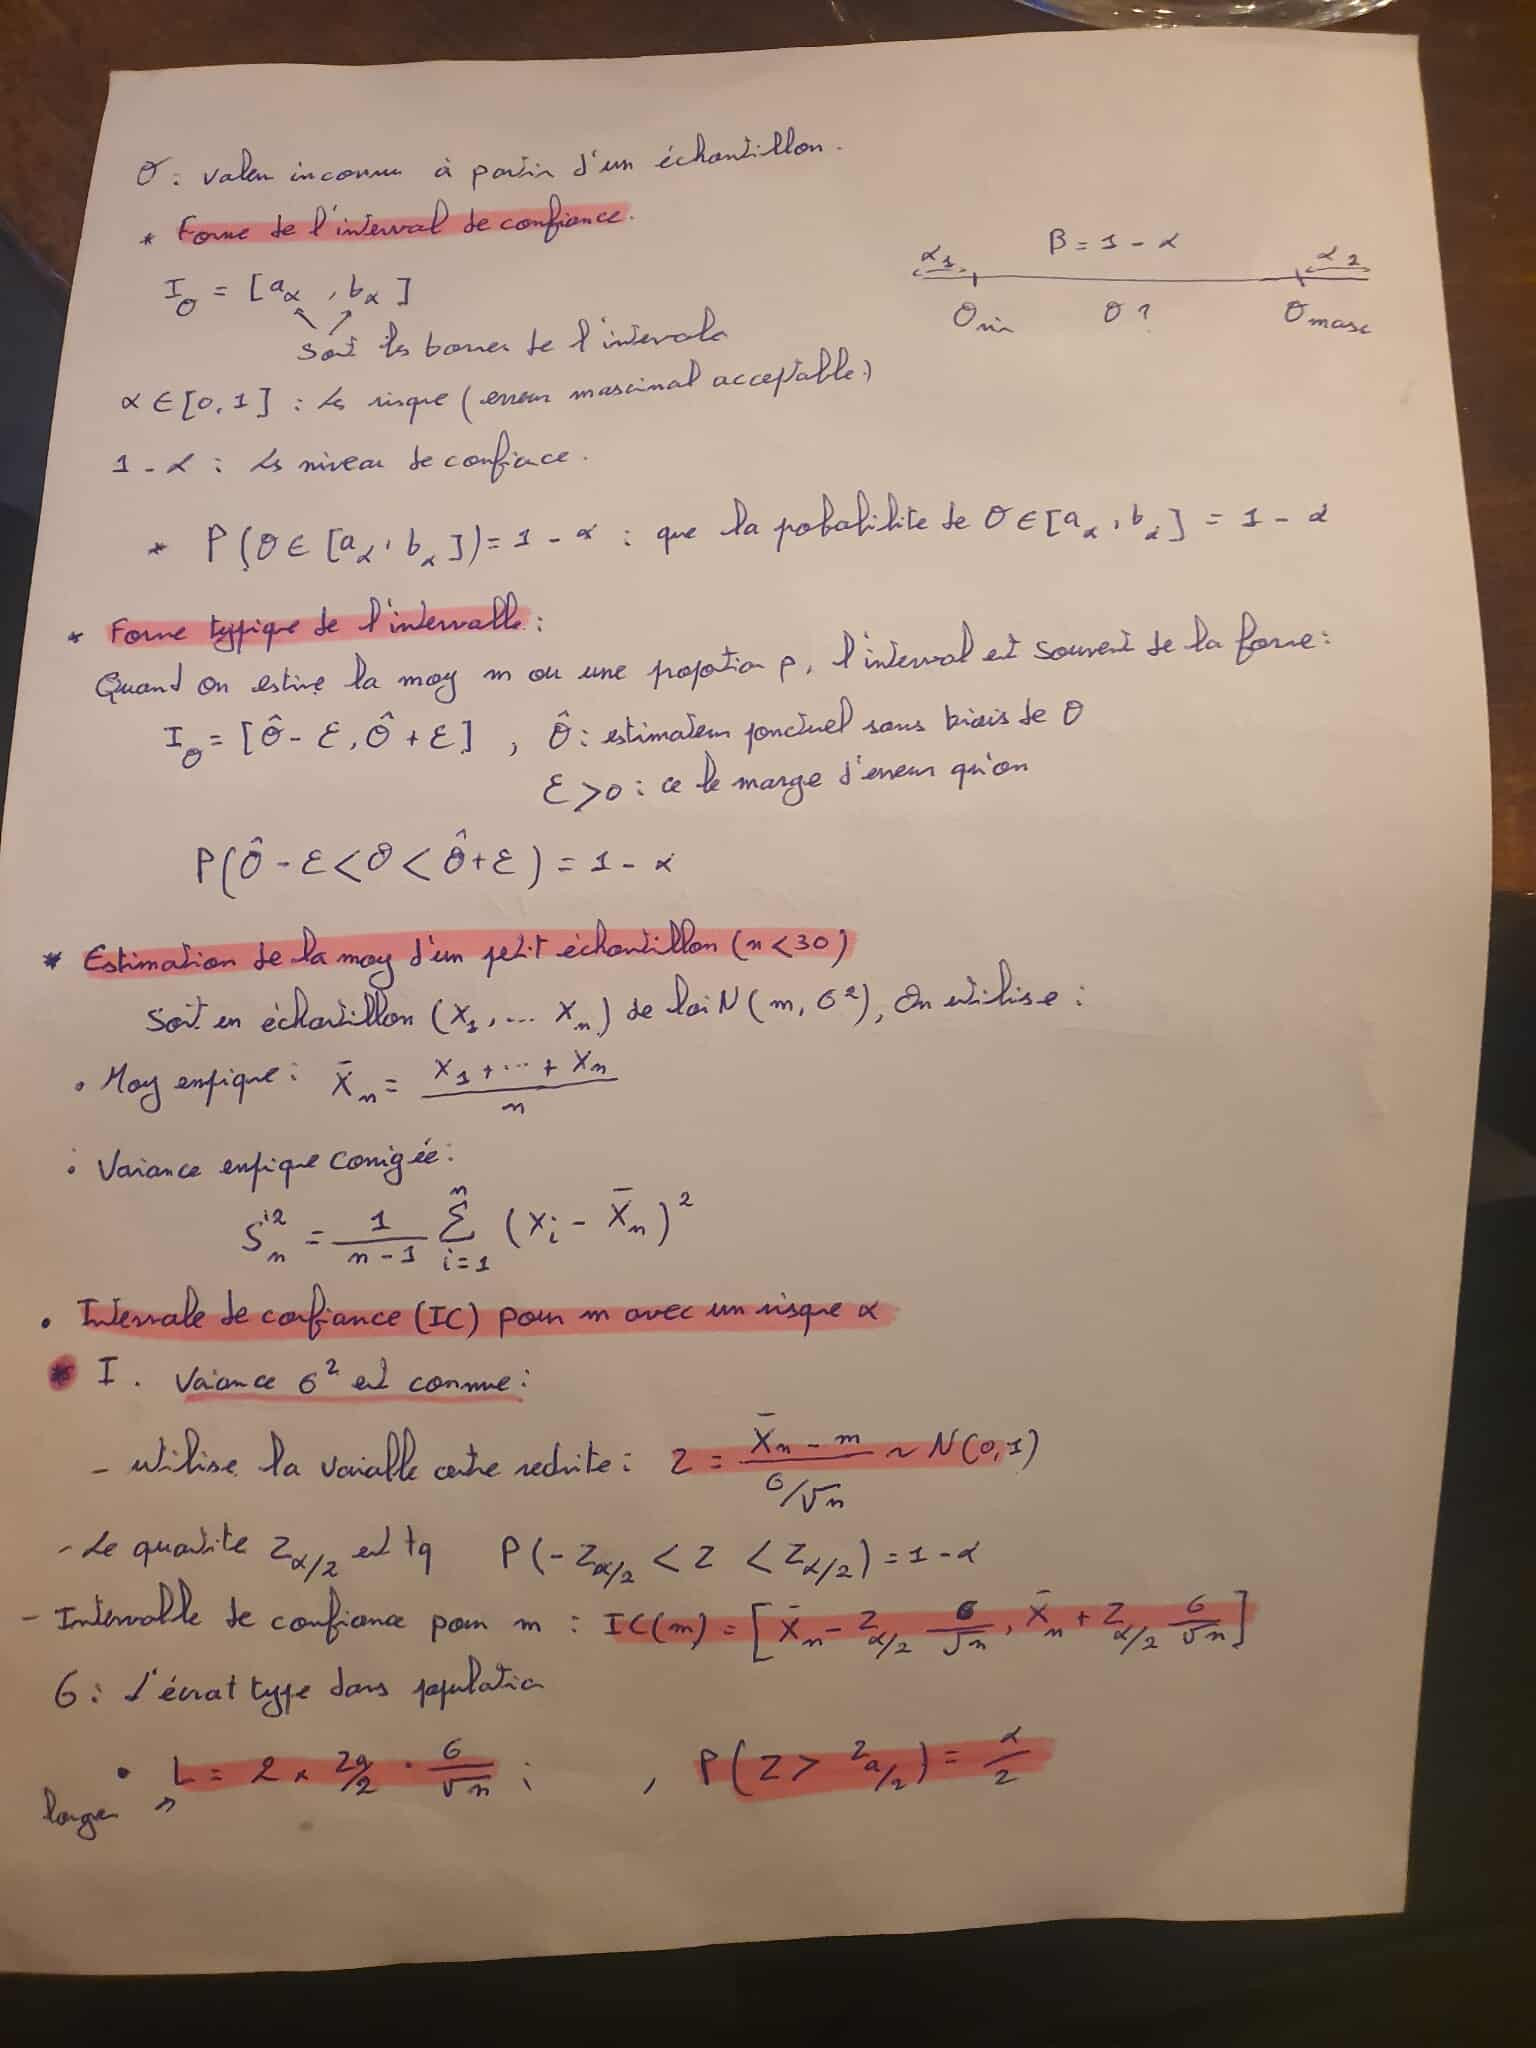 θ : valeu inconnu à partir d'un échantillon.
* Forme de l'interval de confiance.
I_θ = [a_α , b_α]
sont les bornes de l'intervale
α_1 β = 1 - α α_2
θ_min θ ? θ_max
α ∈ [0, 1] : Le risque (erreur maximal acceptable)
1 - α : Le niveau de confiance.
* P(θ ∈ [a_α , b_α]) = 1 - α : que la probabilite de θ ∈ [a_α , b_α] = 1 - α
* Forme typique de l'intervalle :
Quand on estime la moy m ou une proportion p, l'interval est souvent de la forme :
I_θ = [θ̂ - ε, θ̂ + ε] , θ̂ : estimateur ponctuel sans biais de θ
ε > 0 : ce le marge d'erreur qu'on
P(θ̂ - ε < θ < θ̂ + ε) = 1 - α
* Estimation de la moy d'un petit échantillon (n < 30)
Soit en échantillon (X_1, ... X_n) de loi N(m, σ²), On utilise :
• Moy empique : X̄_n = (X_1 + ... + X_n) / n
• Variance empique corrigée :
S'_n² = 1/(n-1) Σ_{i=1}^{n} (X_i - X̄_n)²
• Intervale de confiance (IC) pour m avec un risque α
* I. Variance σ² est connue :
- utilise la variable centre reduite : Z = (X̄_n - m) / (σ/√n) ~ N(0,1)
- Le quantite Z_{α/2} est tq P(-Z_{α/2} < Z < Z_{α/2}) = 1 - α
- Intervalle de confiance pour m : IC(m) = [X̄_n - Z_{α/2} σ/√n , X̄_n + Z_{α/2} σ/√n]
σ : L'écrat type dans population
• L = 2 × Z_{α/2} · σ/√n ; , P(Z > Z_{α/2}) = α/2